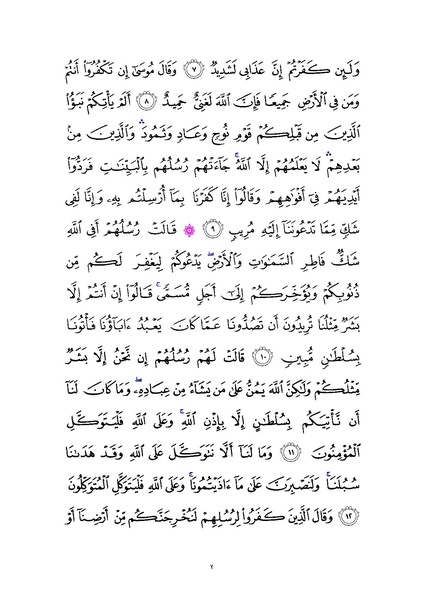 وَلَئِن كَفَرْتُمْ إِنَّ عَذَابِي لَشَدِيدٌ ٧ وَقَالَ مُوسَىٰٓ إِن تَكْفُرُوٓا۟ أَنتُمْ
وَمَن فِي ٱلْأَرْضِ جَمِيعًا فَإِنَّ ٱللَّهَ لَغَنِيٌّ حَمِيدٌ ٨ أَلَمْ يَأْتِكُمْ نَبَؤُا۟
ٱلَّذِينَ مِن قَبْلِكُمْ قَوْمِ نُوحٍ وَعَادٍ وَثَمُودَ ۛ وَٱلَّذِينَ مِنۢ
بَعْدِهِمْ ۛ لَا يَعْلَمُهُمْ إِلَّا ٱللَّهُ ۚ جَآءَتْهُمْ رُسُلُهُم بِٱلْبَيِّنَٰتِ فَرَدُّوٓا۟
أَيْدِيَهُمْ فِيٓ أَفْوَٰهِهِمْ وَقَالُوٓا۟ إِنَّا كَفَرْنَا بِمَآ أُرْسِلْتُم بِهِۦ وَإِنَّا لَفِي
شَكٍّ مِّمَّا تَدْعُونَنَآ إِلَيْهِ مُرِيبٍ ٩ ۞ قَالَتْ رُسُلُهُمْ أَفِي ٱللَّهِ
شَكٌّ فَاطِرِ ٱلسَّمَٰوَٰتِ وَٱلْأَرْضِ ۖ يَدْعُوكُمْ لِيَغْفِرَ لَكُم مِّن
ذُنُوبِكُمْ وَيُؤَخِّرَكُمْ إِلَىٰٓ أَجَلٍ مُّسَمًّى ۚ قَالُوٓا۟ إِنْ أَنتُمْ إِلَّا
بَشَرٌ مِّثْلُنَا تُرِيدُونَ أَن تَصُدُّونَا عَمَّا كَانَ يَعْبُدُ ءَابَآؤُنَا فَأْتُونَا
بِسُلْطَٰنٍ مُّبِينٍ ١٠ قَالَتْ لَهُمْ رُسُلُهُمْ إِن نَّحْنُ إِلَّا بَشَرٌ
مِّثْلُكُمْ وَلَٰكِنَّ ٱللَّهَ يَمُنُّ عَلَىٰ مَن يَشَآءُ مِنْ عِبَادِهِۦ ۖ وَمَا كَانَ لَنَآ
أَن نَّأْتِيَكُم بِسُلْطَٰنٍ إِلَّا بِإِذْنِ ٱللَّهِ ۚ وَعَلَى ٱللَّهِ فَلْيَتَوَكَّلِ
ٱلْمُؤْمِنُونَ ١١ وَمَا لَنَآ أَلَّا نَتَوَكَّلَ عَلَى ٱللَّهِ وَقَدْ هَدَىٰنَا
سُبُلَنَا ۚ وَلَنَصْبِرَنَّ عَلَىٰ مَآ ءَاذَيْتُمُونَا ۚ وَعَلَى ٱللَّهِ فَلْيَتَوَكَّلِ ٱلْمُتَوَكِّلُونَ
١٢ وَقَالَ ٱلَّذِينَ كَفَرُوا۟ لِرُسُلِهِمْ لَنُخْرِجَنَّكُم مِّنْ أَرْضِنَآ أَوْ
٢